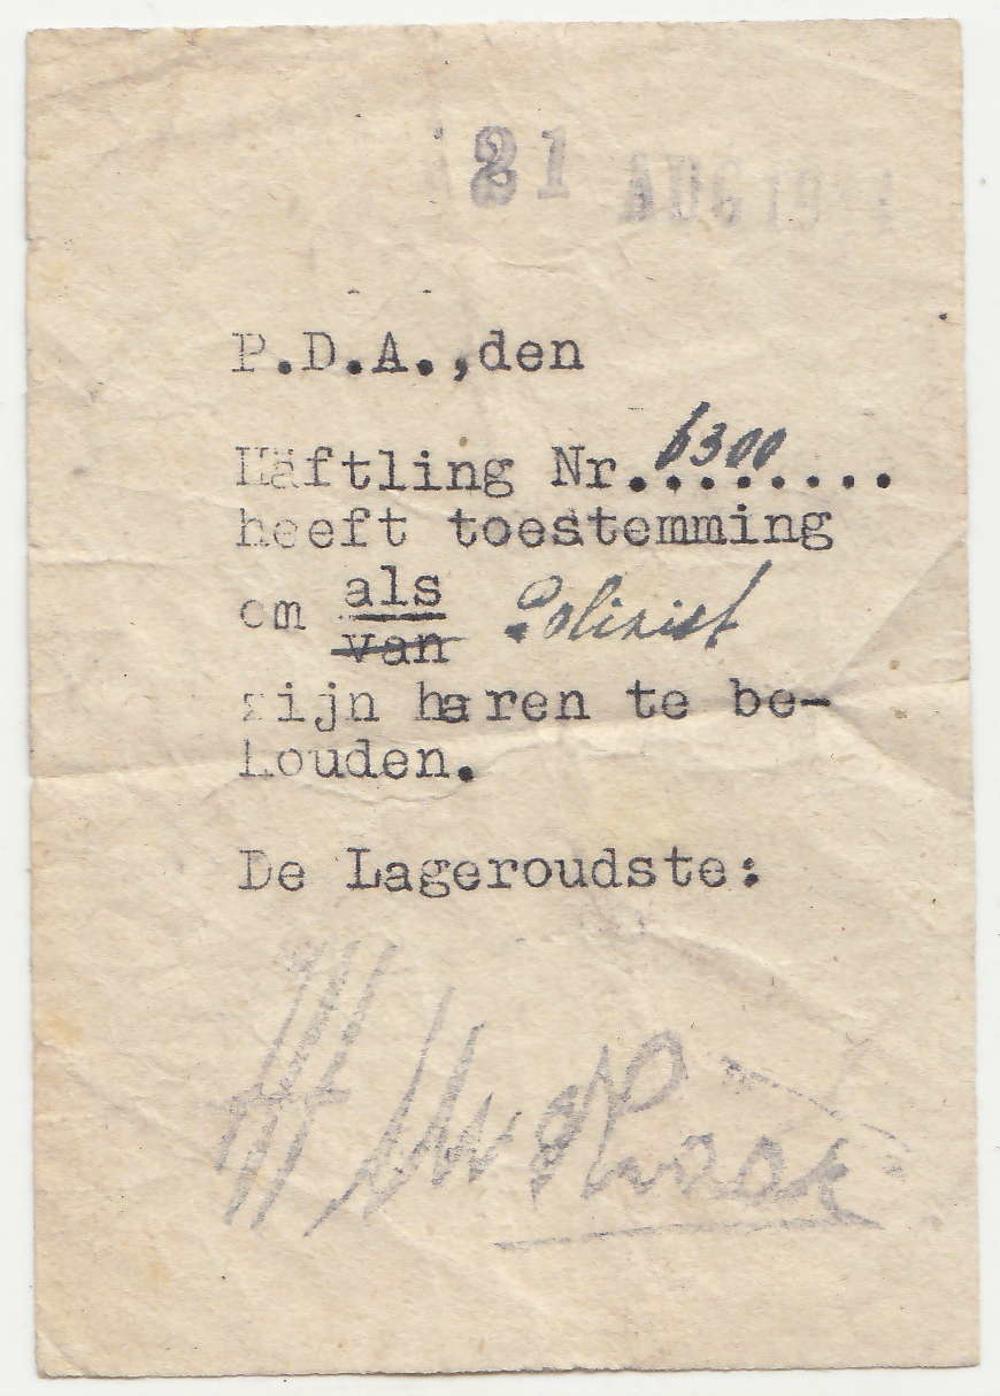 21 AUG 19
P.D.A.,den
Häftling Nr.6300........
heeft toestemming
om als Polizist
van
zijn haren te be-
houden.
De Lageroudste: